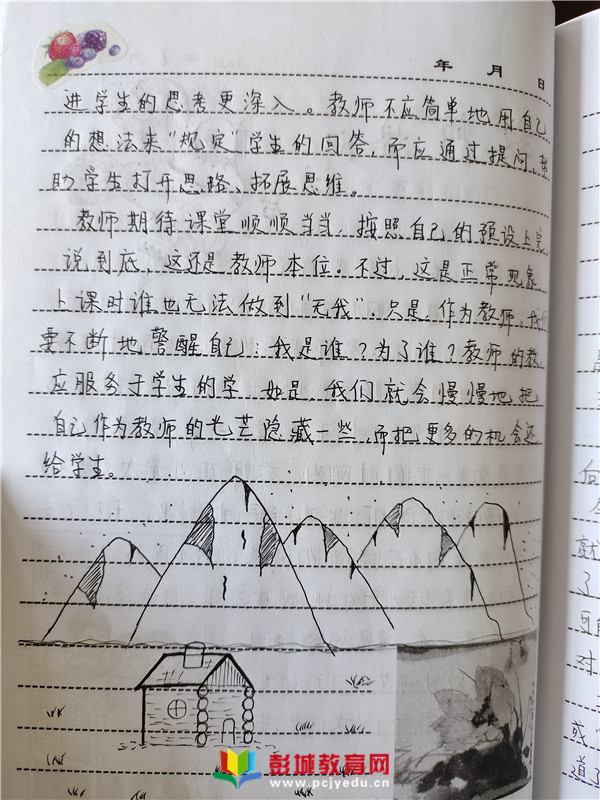 年 月 日
进学生的思考更深入。教师不应简单地用自己
的想法来“规定”学生的回答,而应通过提问,帮
助学生打开思路、拓展思维。
教师期待课堂顺顺当当,按照自己的预设上完
说到底,这还是教师本位。不过,这是正常现象
上课时谁也无法做到“无我”,只是,作为教师,我们
要不断地警醒自己:我是谁?为了谁?教师的教
应服务于学生的学 如是 我们就会慢慢地把
自己作为教师的光芒隐藏一些,而把更多的机会还
给学生。
向
就
了
可能
对
或
道了
彭城教育网
www.pcjyedu.cn